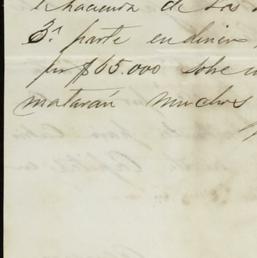 hacienda de la
3ª parte en dinero
por $65.000 sobre
mataran muchos